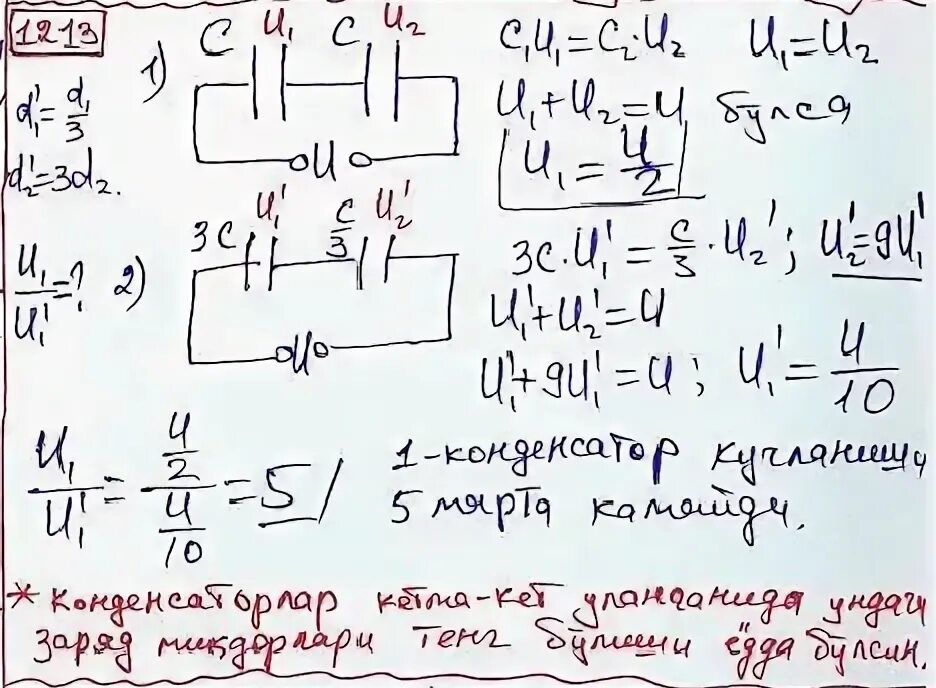 1213
d₁' = d₁/3
d₂' = 3d₂.
U₁/U₁' = ?
1) C U₁ C U₂
U
C₁U₁ = C₂·U₂ U₁ = U₂
U₁ + U₂ = U бўлса
U₁ = U/2
2) 3C U₁' C/3 U₂'
U
3C·U₁' = C/3·U₂'; U₂' = 9U₁'
U₁' + U₂' = U
U₁' + 9U₁' = U; U₁' = U/10
U₁/U₁' = (U/2)/(U/10) = 5/
1-конденсатор кучланиши
5 марта камайди.
* Конденсаторлар кетма-кет уланганида ундаги
заряд миқдорлари тенг бўлиши ёдда бўлсин.